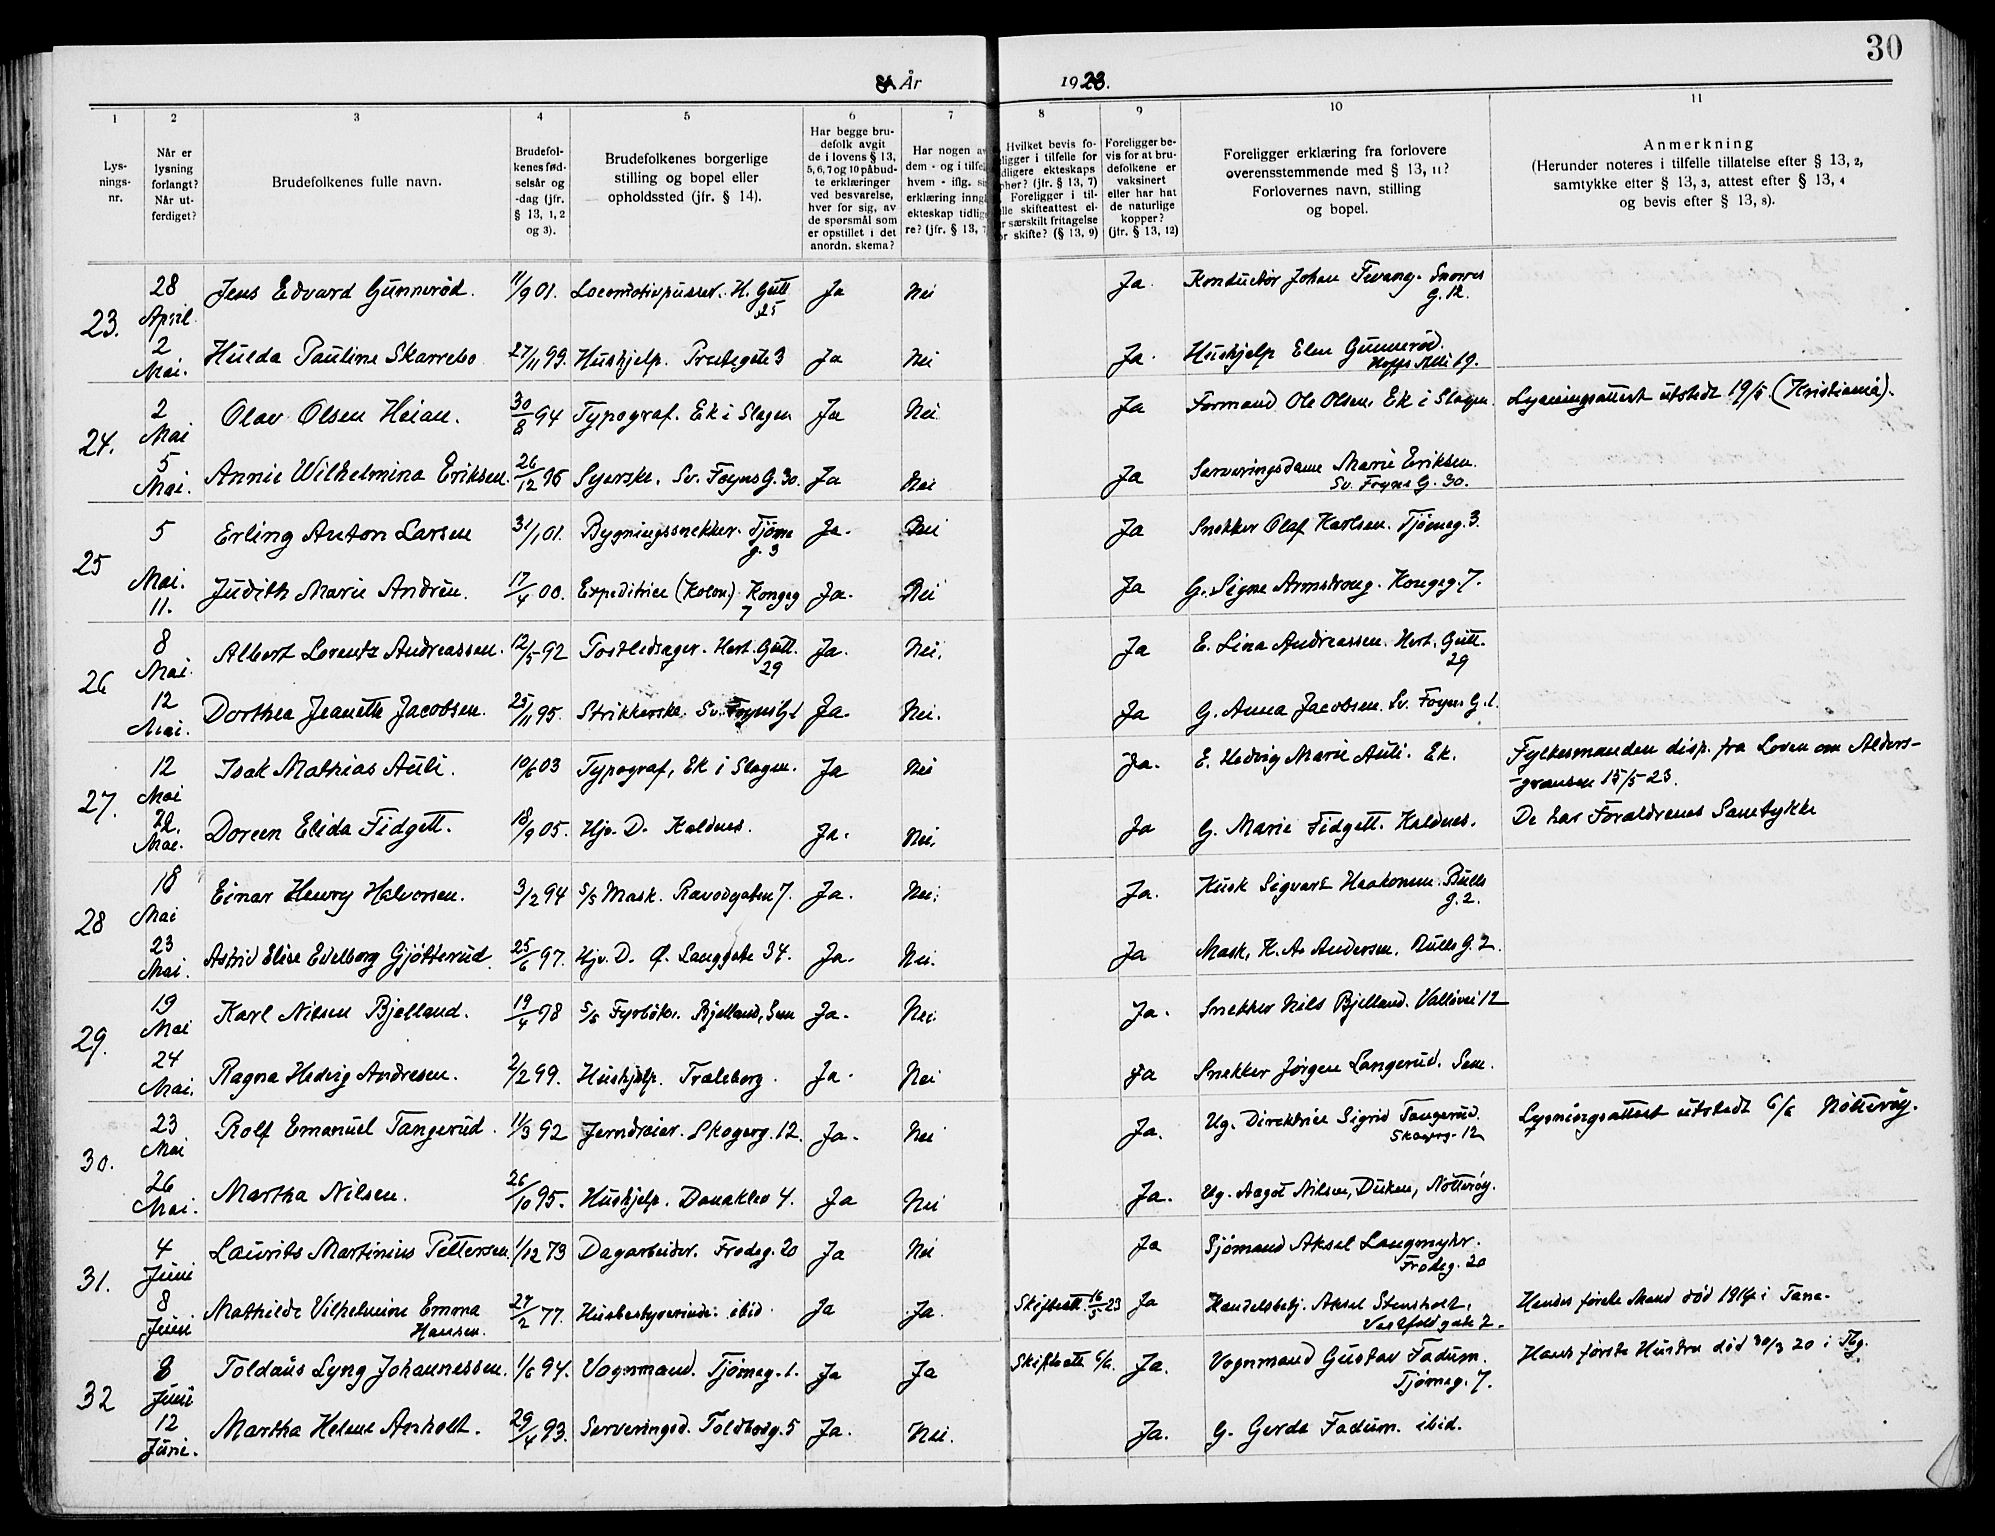 30
År 1923.
1 2 3 4 5 6 7 8 9 10 11
Lys-
nings-
nr.
Når er
lysning
forlangt?
Når ut-
ferdiget?
Brudefolkenes fulle navn.
Brudefol-
kenes fød-
selsår og
-dag (jfr.
§ 13, 1, 2
og 3).
Brudefolkenes borgerlige
stilling og bopel eller
opholdssted (jfr. § 14).
Har begge bru-
defolk avgit
de i lovens § 13,
5, 6, 7 og 10 påbud-
te erklæringer
ved besvarelse,
hver for sig, av
de spørsmål som
er opstillet i det
anordn. skema?
Har nogen av
dem - og i tilfel
hvem - iflg. si
erklæring inngå
ekteskap tidlige
re? (jfr. § 13, 7
Hvilket bevis fo-
ligger i tilfelle for
idligere ekteskaps
phør? (jfr. § 13, 7)
Foreligger i til-
elle skifteattest el-
r særskilt fritagelse
or skifte? (§ 13, 9)
Foreligger be-
vis for at bru-
defolkene er
vaksinert
eller har hat
de naturlige
kopper?
(jfr. § 13, 12)
Foreligger erklæring fra forlovere
overensstemmende med § 13, 11?
Forlovernes navn, stilling
og bopel.
Anmerkning
(Herunder noteres i tilfelle tillatelse efter § 13, 2,
samtykke efter § 13, 3, attest efter § 13, 4
og bevis efter § 13, 8).
23. 28 April Jens Edvard Gunnerød. 11/9 01. Locomotivpusser. H. Gutt. 25 Ja Nei Ja Konductør Johan Tevang. Snorres G. 12.
2 Mai. Hulda Pauline Skarrebo 27/11 99. Hushjelp. Prestegate 3 Ja Nei Ja. Hushjelp Elen Gunnerød. 
24. 2 Mai Olav Olsen Heian. 30/8 94 Typograf. Ek i Slagen Ja Nei Ja Formand Ole Olsen, Ek i Slagen Lysningsattest utstedt 19/5 (Kristiania).
5 Mai. Annie Wilhelmina Eriksen. 26/12 96 Syerske. Sv. Foyns G. 30. Ja Nei Ja Serveringsdame Marie Eriksen.
Sv. Foyns G. 30.
25 5 Erling Anton Larsen 31/1 01. Bygningssnekker. Tjøme g. 3 Ja. Nei Ja Snekker Olaf Karlsen. Tjømeg. 3.
Mai. 11. Judith Marie Andrén. 17/4 00. Expeditrice (Kolon.) Kongeg 7 Ja. Nei Ja G. Signe Armstrong. Kongeg. 7.
26 8 Mai. Albert Lorentz Andreassen. 12/5 92 Postledsager. Hert. Gutt. 29 Ja. Nei. Ja E. Lina Andreassen. Hert. Gutt. 29
12 Mai. Dorthea Jeanette Jacobsen. 25/11 95. Strikkerske. Sv. Foyns G 1 Ja. Nei. Ja G. Anna Jacobsen. Sv. Foyns G. 1.
27. 12 Mai Isak Mathias Auli. 10/6 03 Typograf, Ek i Slagen. Ja Nei Ja. E. Hedvig Marie Auli. Ek. Fylkesmanden disp. fra Loven om Alders-
-grænsen 15/5-23.
22. Mai. Doreen Elida Fidgett. 18/9 05. Hjv. D. Kaldnes. Ja. Nei. Ja G. Marie Fidgett. Kaldnes. De har Forældrenes Samtykke
28 18 Mai Einar Henry Halvorsen. 3/2 94 S/S Mask. Ravodgaten 7. Ja. Nei. Ja. Kusk Sigvart Haakonsen. Bulls G. 2.
23 Mai. Astrid Elise Edelborg Gjøtterud 25/6 97. Hjv. D. Ø. Langgate 34. Ja. Nei. Ja Mask. K. A. Andersen. Bulls G. 2.
29. 19 Mai Karl Nilsen Bjelland. 19/4 98 S/S Fyrbøter. Bjelland, Sem Ja. Nei. Ja. Snekker Nils Bjelland. Valløvei 12
24 Mai. Ragna Hedvig Andresen. 2/2 99. Hushjelp. Træleborg. Ja. Nei Ja Snekker Jørgen Langerud. Sem.
30. 23 Mai Rolf Emanuel Tangerud. 11/3 92 Jerndreier. Skogerg. 12. Ja. Nei Ja. Ug. Direktrice Sigrid Tangerud.
Skogerg. 12 Lysningsattest utstedt 6/6 Nøtterøy.
26 Mai. Martha Nilsen. 26/10 95. Hushjelp. Danaklev 4. Ja Nei Ja. Ug. Aagot Nilsen, Duken, Nøtterøy.
31. 4 Juni Laurits Martinius Pettersen. 1/12 73 Dagarbeider. Frodeg. 20 Ja Nei Ja Sjømand Aksel Langmyhr.
Frodeg. 20
8 Juni Mathilde Vilhelmine Emma
Hansen. 27/2 77. Husbestyrerinde. ibid. Ja Ja. Skifteatt. 16/5 23 Ja Handelsbetj. Aksel Stensholt.
Vestfoldgate 2. Hendes første Mand død 1914 i Tana.
32 8 Juni Toldaus Lyng Johannessen. 1/6 94. Vognmand. Tjømeg. 1. Ja Ja Skifteatt. 6/6. Ja. Vognmand Gustav Fadum.
Tjømeg. 7. Hans første Hustru død 30/3 20 i Tbg.
12 Juni. Martha Helene Anholt. 29/4 93. Serveringsd. Toldbodg. 5 Ja. Nei. Ja. G. Gerda Fadum. ibid.